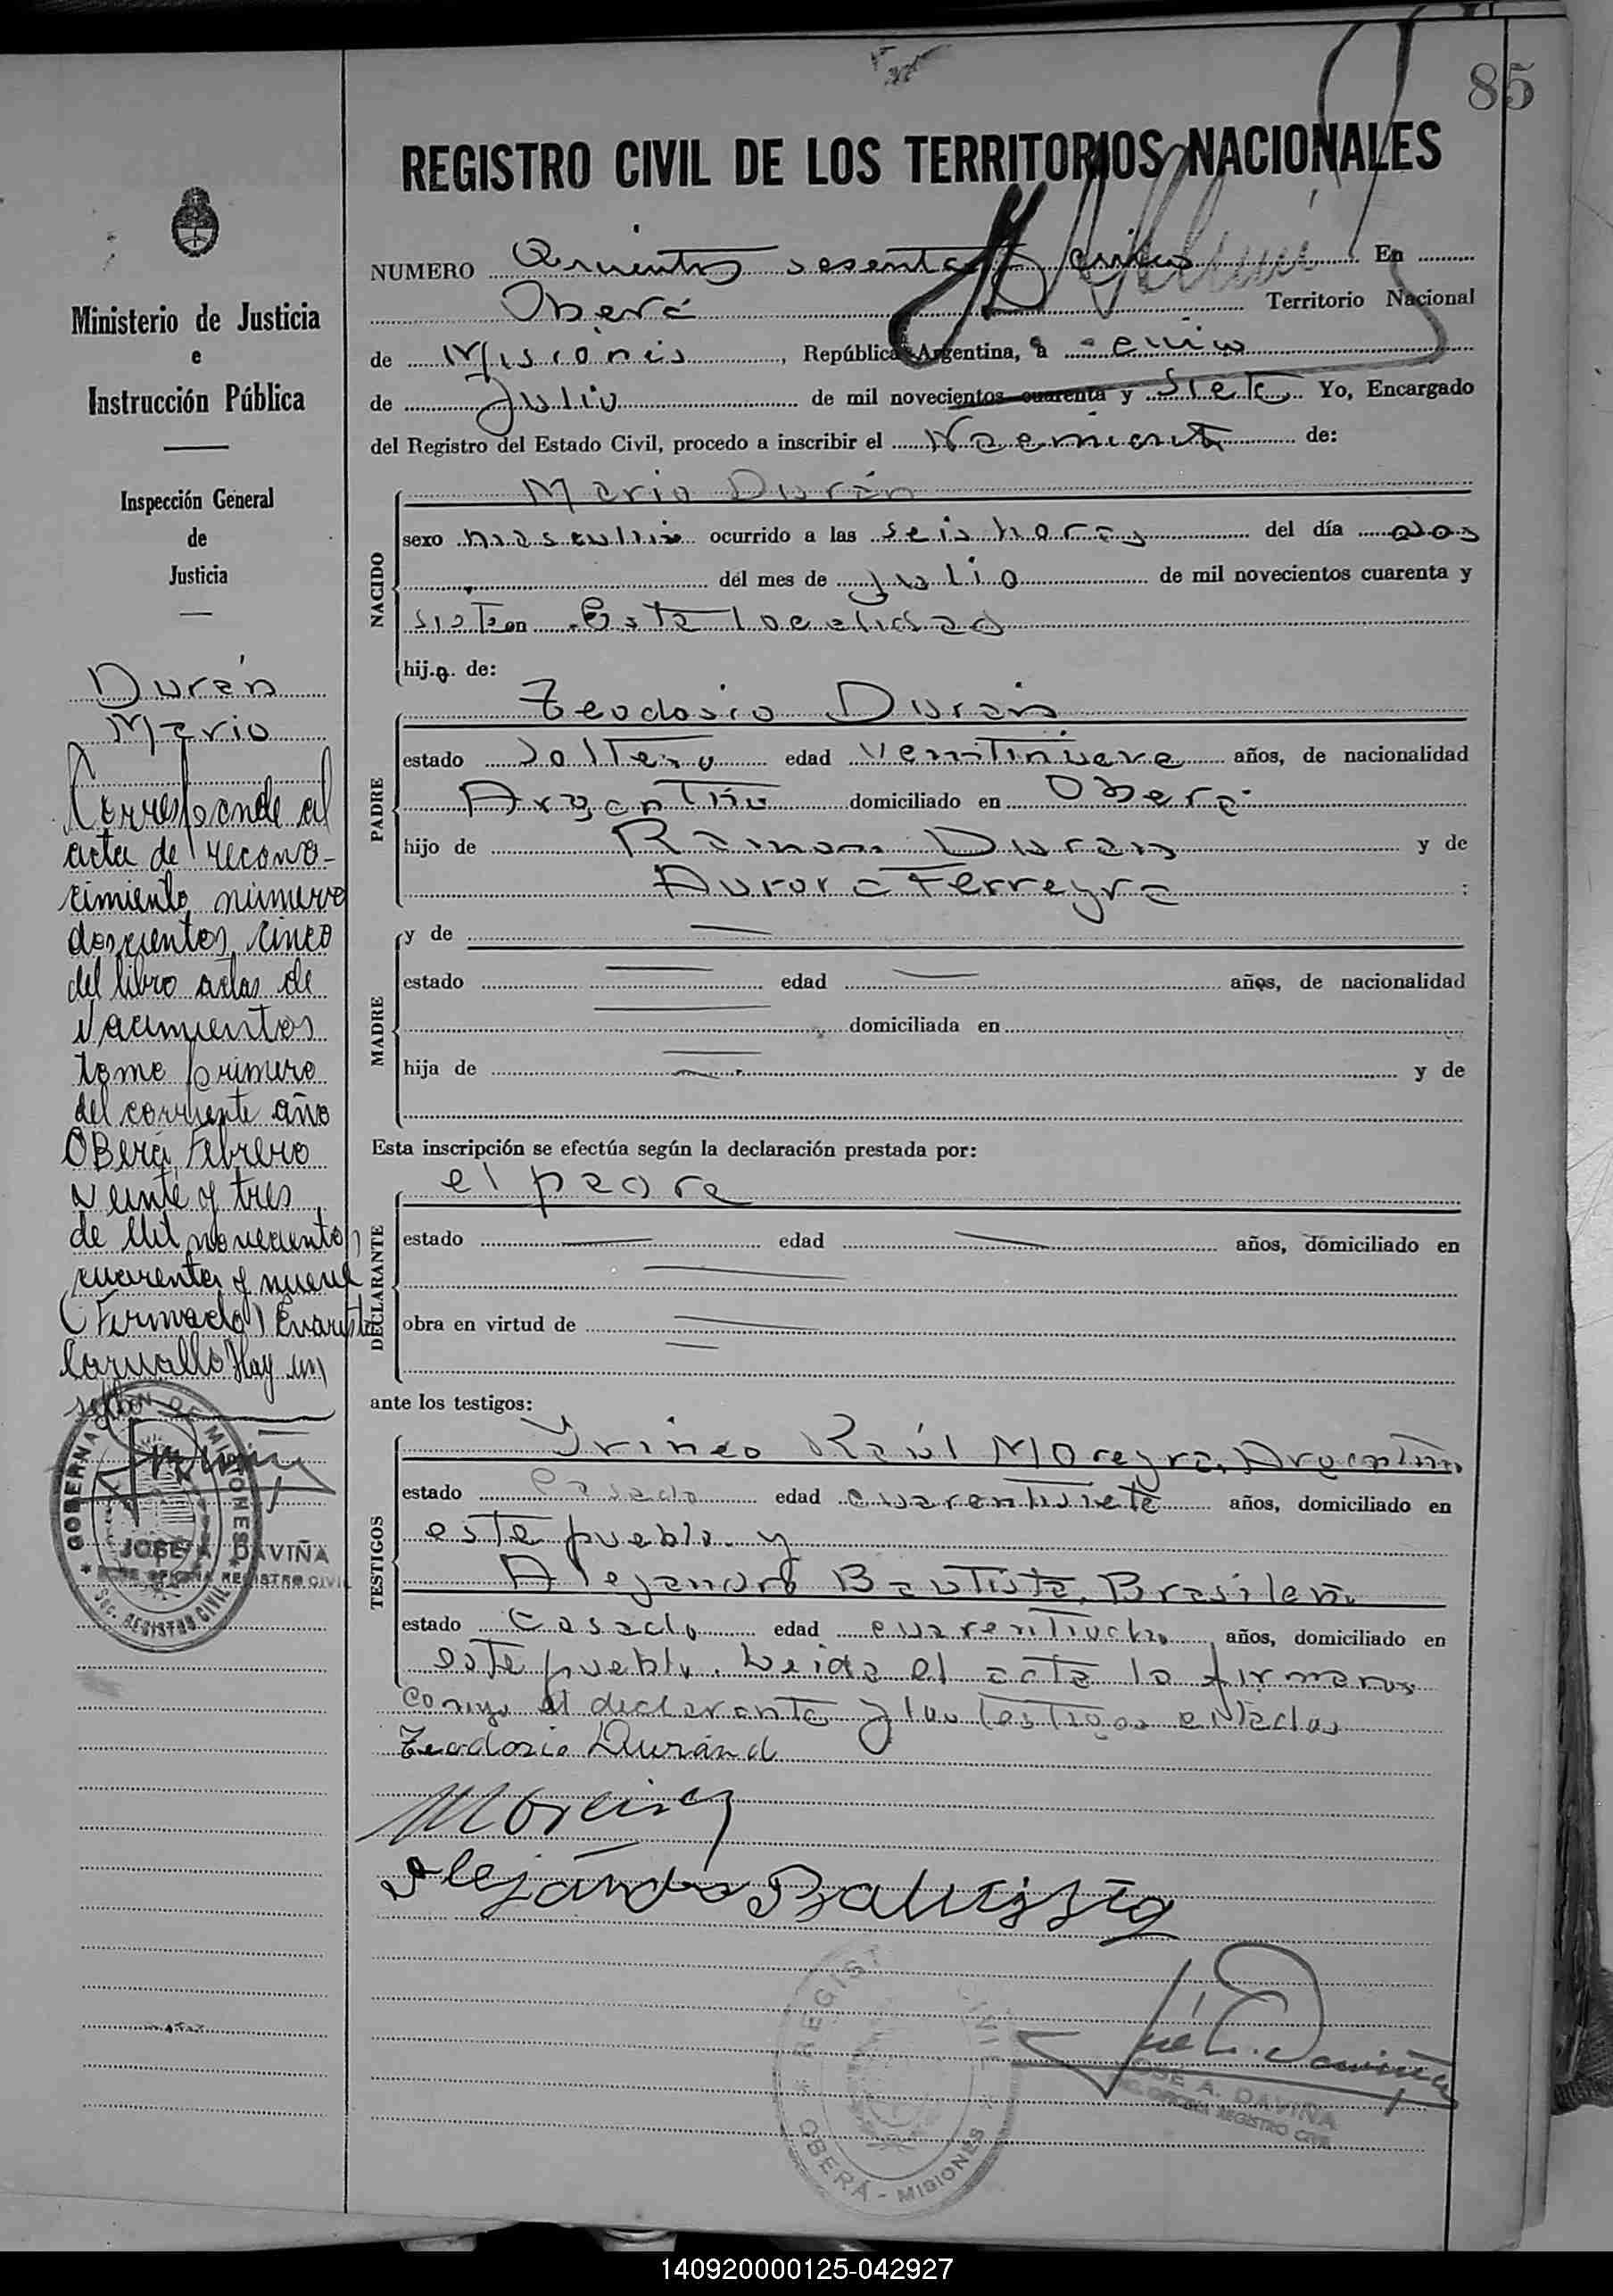 85
REGISTRO CIVIL DE LOS TERRITORIOS NACIONALES
Ministerio de Justicia
e
Instrucción Pública
Inspección General
de
Justicia
Durán
Mario
Corresponde al
acta de recono-
cimiento número
doscientos cinco
del libro actas de
Nacimientos
tomo primero
del corriente año
OBerá, Febrero
veinte y tres
de Mil novecientos
cuarenta y nueve
(Firmado) Evaristo
Carvallo Hay un
sello
GOBERNACIÓN DE MISIONES
JOSÉ A. DAVIÑA
JEFE OFICINA REGISTRO CIVIL
SEC. REGISTRO CIVIL
NUMERO Quinientos sesenta y cinco En
Oberá Territorio Nacional
de Misiones, República Argentina, a cinco
de Julio de mil novecientos cuarenta y siete Yo, Encargado
del Registro del Estado Civil, procedo a inscribir el Nacimiento de:
NACIDO
Mario Durán
sexo masculino ocurrido a las seis horas del día dos
del mes de julio de mil novecientos cuarenta y
siete en Esta localidad
hijo de:
PADRE
Teodosio Durán
estado Soltero edad Veintinueve años, de nacionalidad
Argentino domiciliado en Oberá
hijo de Ramón Durán y de
Aurora Ferreyra ;
MADRE
y de
estado edad años, de nacionalidad
domiciliada en
hija de y de
Esta inscripción se efectúa según la declaración prestada por:
DECLARANTE
el padre
estado edad años, domiciliado en
obra en virtud de
ante los testigos:
TESTIGOS
Irineo Raúl Moreyra, Argentino
estado Casado edad cuarentisiete años, domiciliado en
este pueblo y
Alejandro Bautista, Brasileño
estado Casado edad cuarentiocho años, domiciliado en
este pueblo. Leida el acta la firmaron
conmigo el declarante y los testigos citados
Teodosio Duránd
Alejandro Bautista
José A. Daviña
JOSE A. DAVIÑA
JEFE OFICINA REGISTRO CIVIL
REGISTRO CIVIL
OBERÁ - MISIONES
140920000125-042927